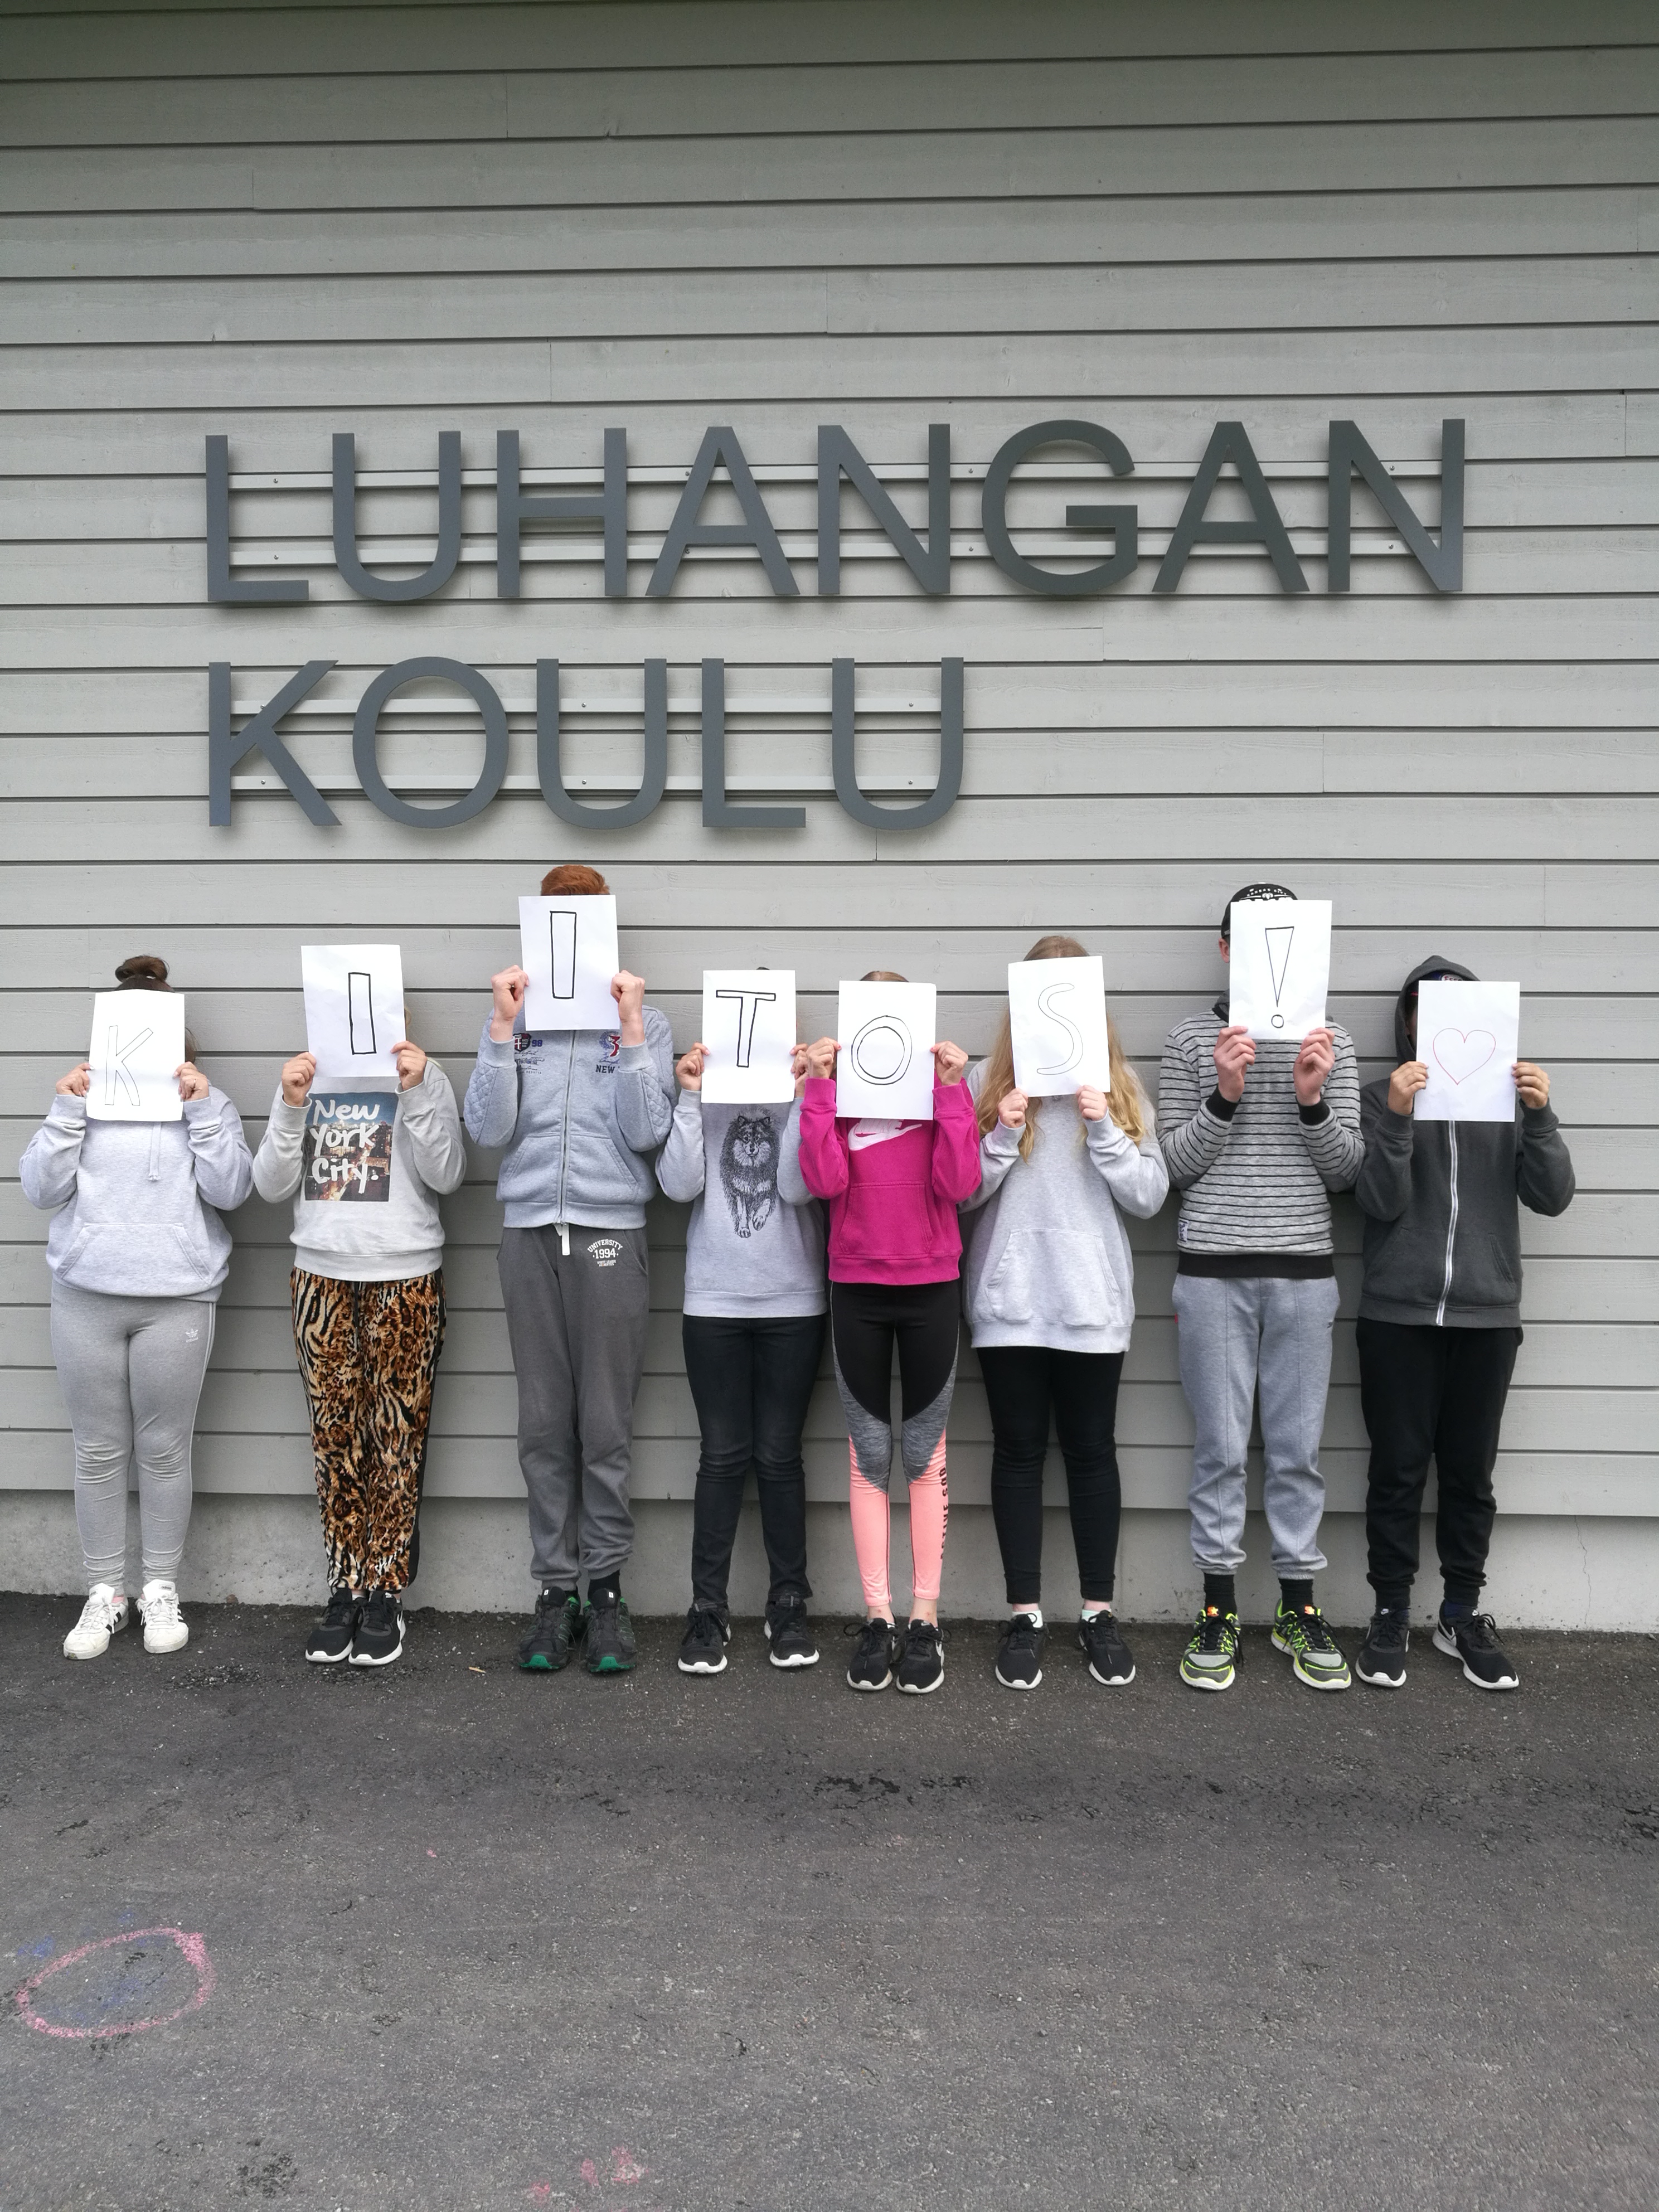 LUHANGAN
KOULU
K I I T O S ! ♡
98
3
NEW
New
York
City.
UNIVERSITY
1994